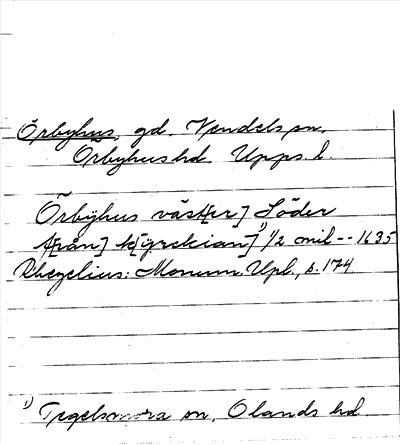 Örbyhus, gd. Vendels sn.
Örbyhus hd. Upps. l.
Örbÿhus väst[er] Söder
f[rån] k[yrckian]¹⁾ 1/2 mil -- 1635
Rhezelius: Monum. Upl., s. 174.
¹⁾ Tegelsmora sn, Olands hd.